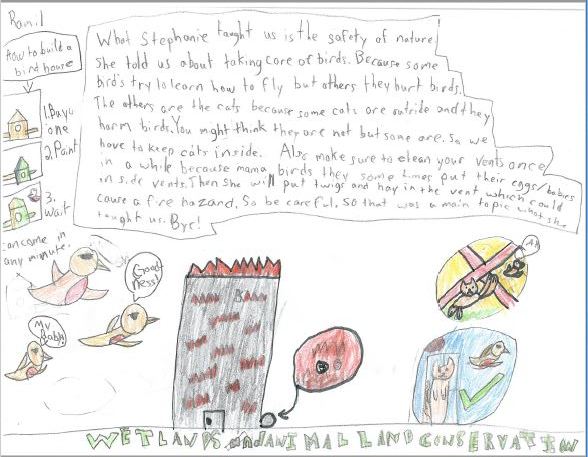 Ramil
How to build a
bird house
1. Buy a
one
2. Paint
3.
Wait
can come in
any minute.
What Stephanie taught us is the safety of nature!
She told us about taking care of birds. Because some
bird's try to learn how to fly but others they hurt birds.
The others are the cats because some cats are outside and they
harm birds. You might think they are not but some are. So we
have to keep cats inside. Also make sure to clean your vents once
in a while because mama birds they some times put their eggs/babies
in side vents. Then she will put twigs and hay in the vent which could
cause a fire hazard. So be careful. So that was a main topic what she
taught us. Bye!
Good
ness!
My
Baby!
WETLANDS AND ANIMAL LAND CONSERVATION